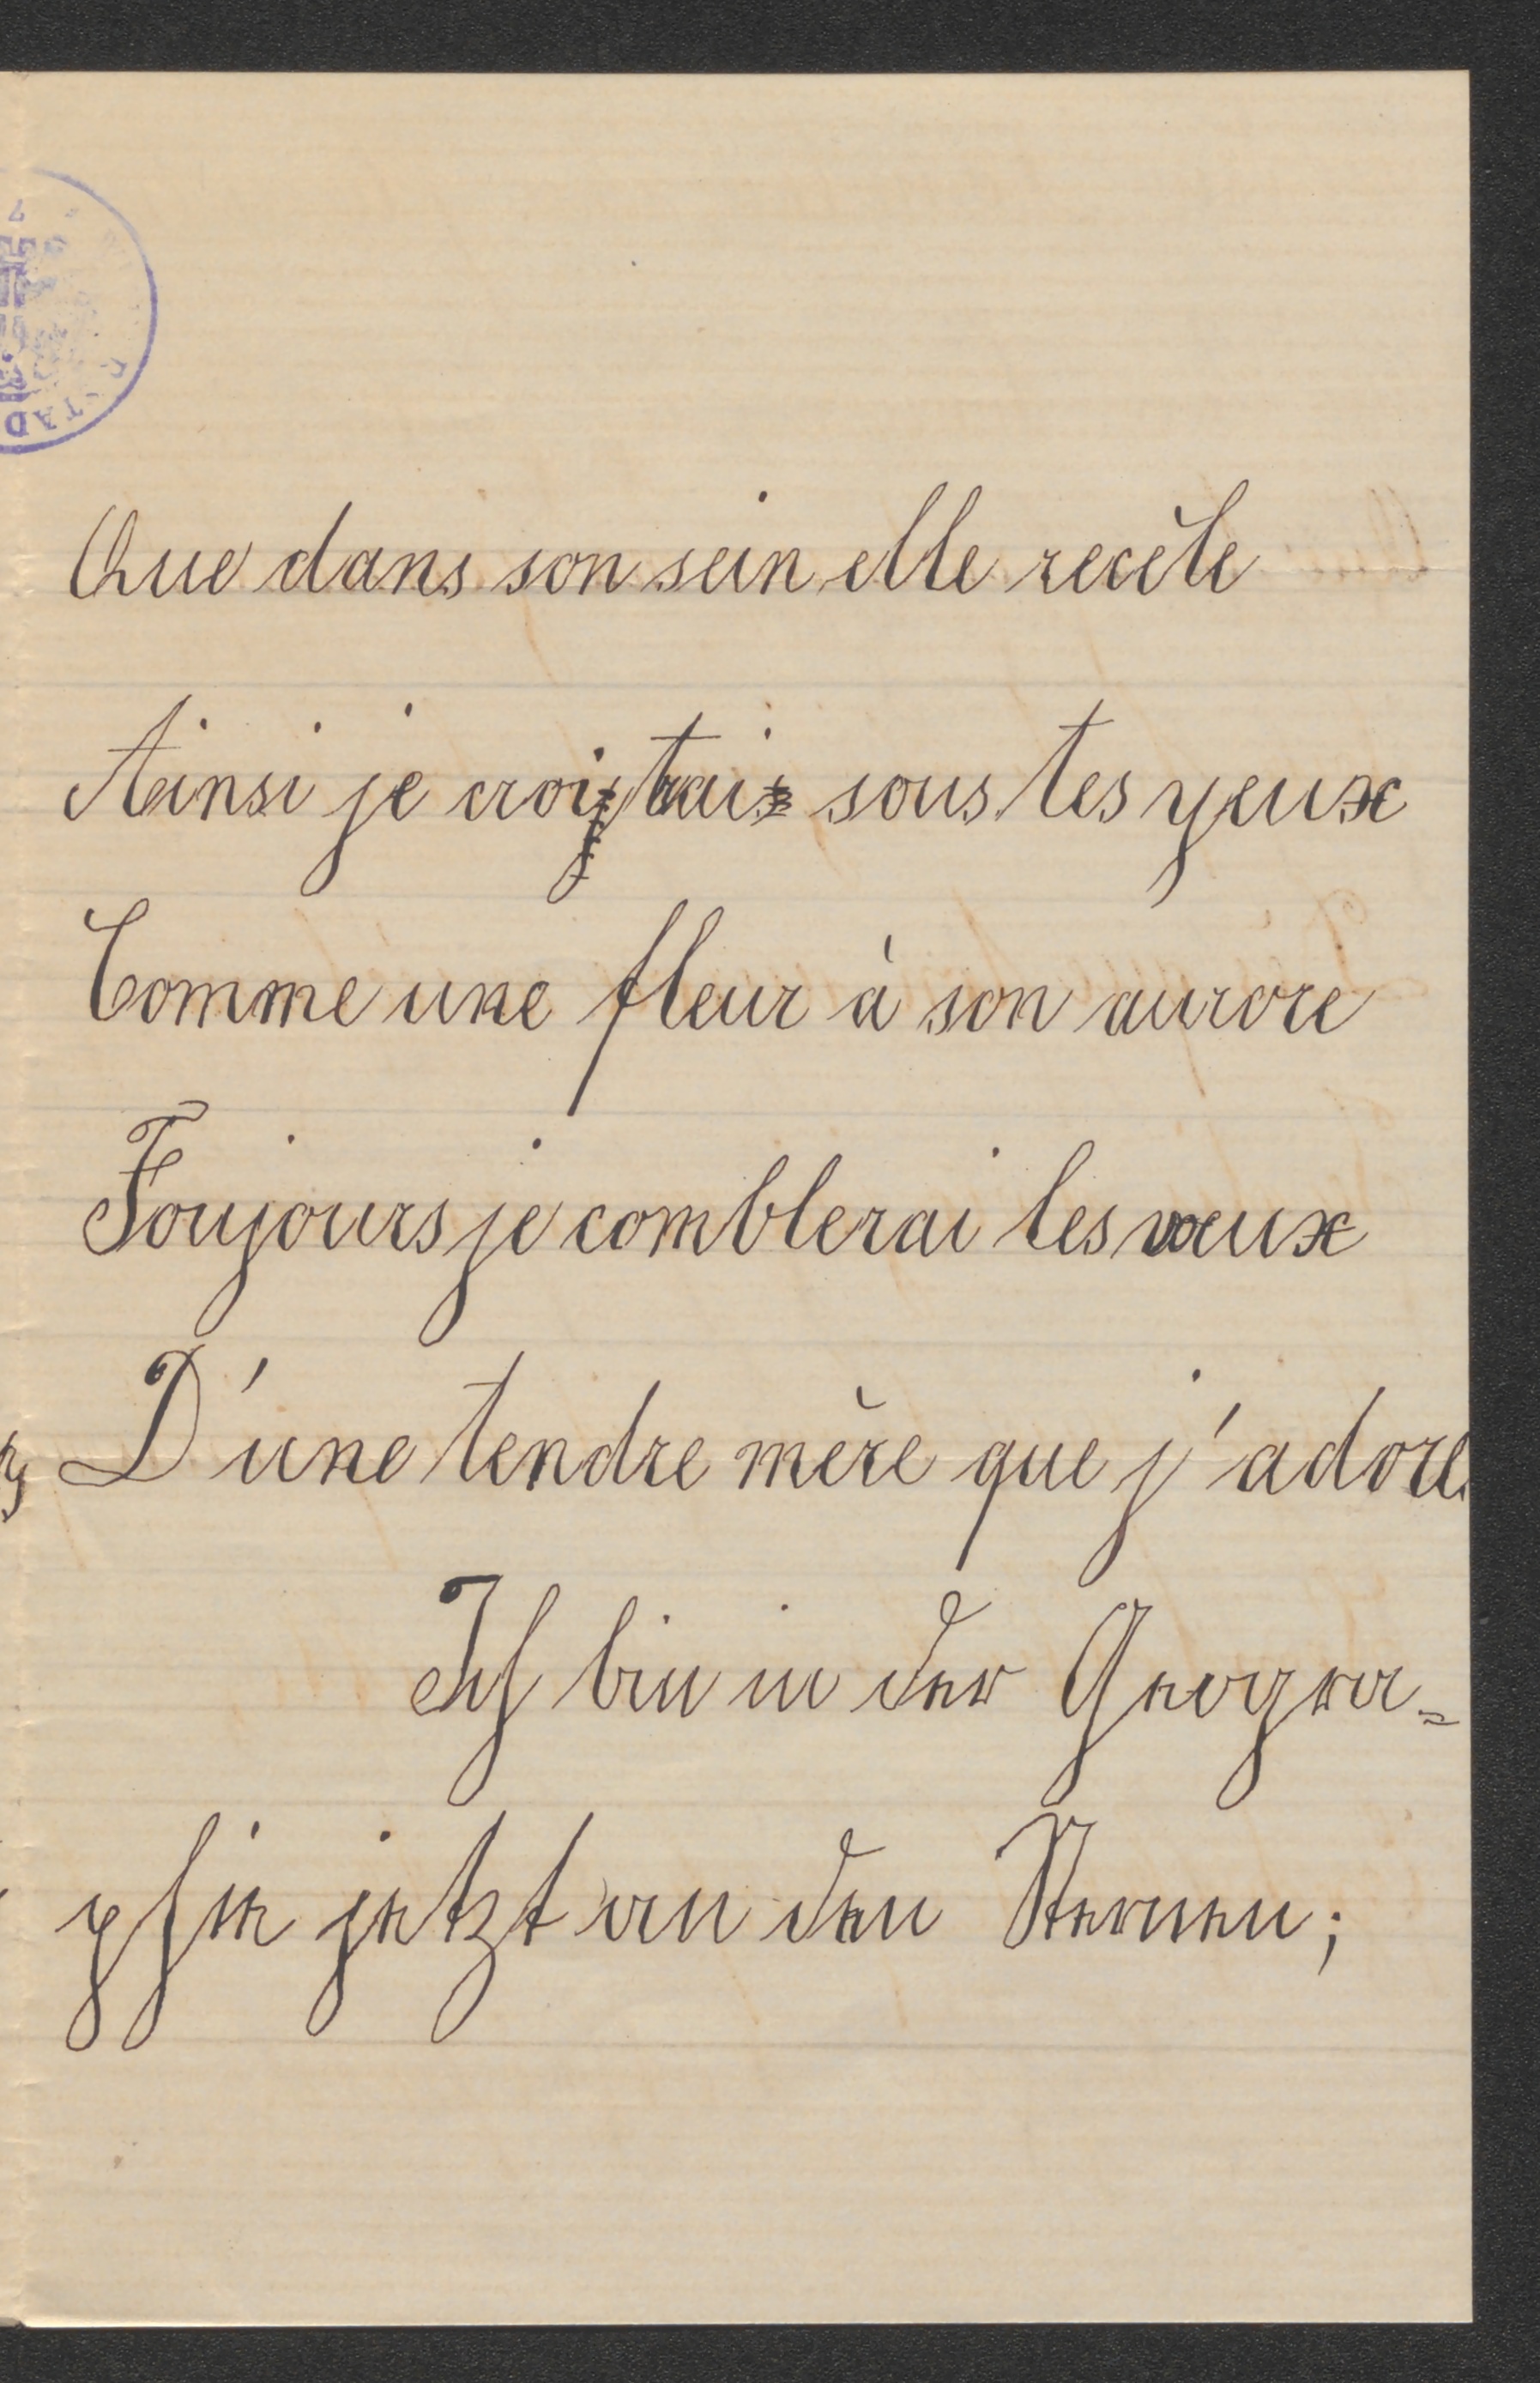 Que dans son sein elle recèle
Ainsi je croitrai sous tes yeux
Comme une fleur à son aurore
Toujours je comblerai les vœux
D'une tendre mère que j'adore.
Ich bin in der Geogra=
phie jetzt an den